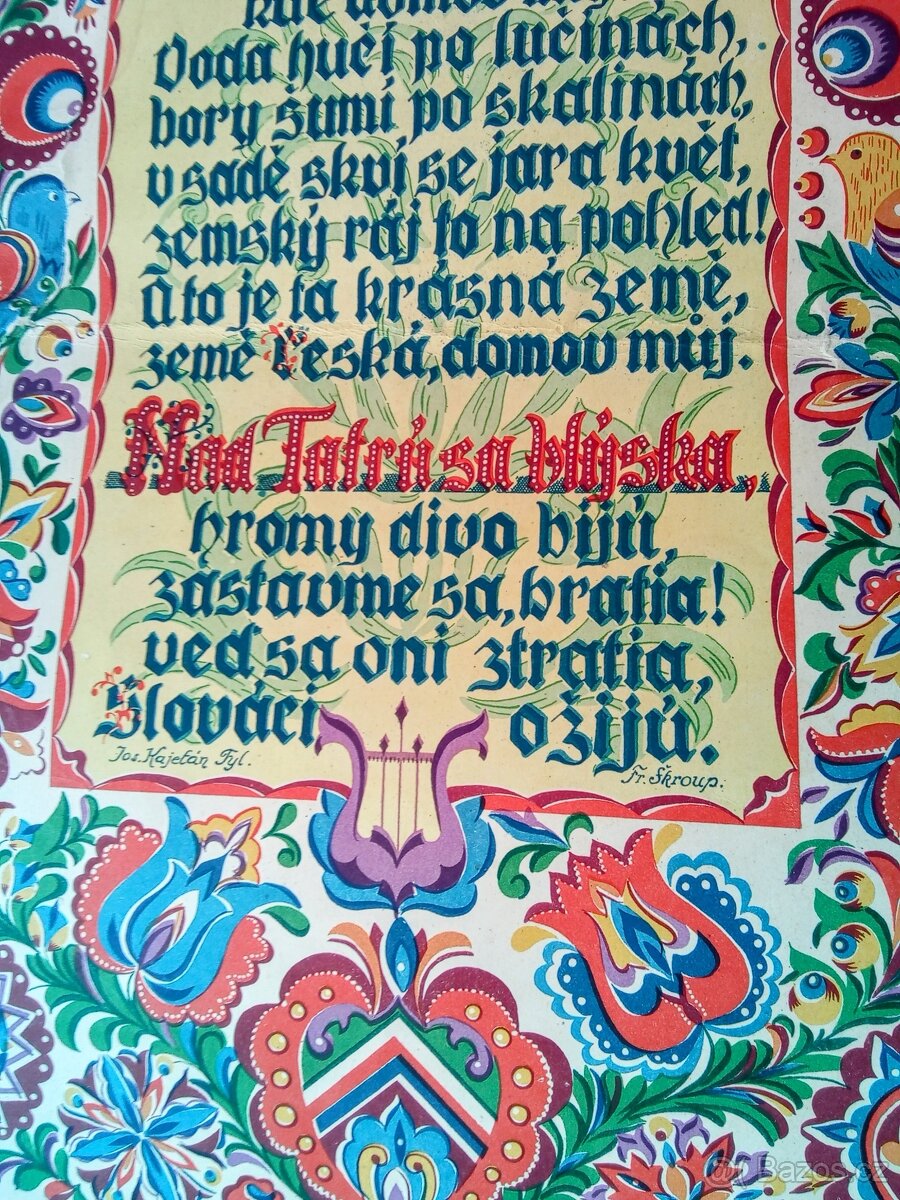 kde domov můj
Voda hučí po lučinách,
bory šumí po skalinách,
v sadě skví se jara květ,
zemský ráj to na pohled!
A to je ta krásná země,
země Česká, domov můj.
Nad Tatrú sa blýska,
hromy divo bijú,
zastavme sa, bratia!
veď sa oni ztratia,
Slováci ožijú.
Jos. Kajetán Tyl.
Fr. Škroup.
Bazos.cz